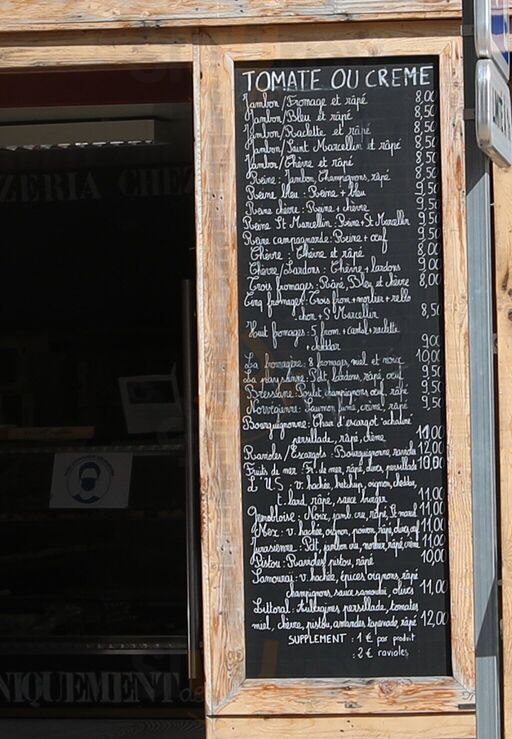 TOMATE OU CREME
Jambon/Fromage et râpé 8,00
Jambon/Bleu et râpé 8,50
Jambon/Raclette et râpé 8,50
Jambon/Saint Marcellin et râpé 8,50
Jambon/Chèvre et râpé 8,50
Reine: Jambon, Champignons, râpé 8,50
Reine bleu: Reine + bleu 9,50
Reine chèvre: Reine + chèvre 9,50
Reine St Marcellin: Reine + St Marcellin 9,50
Reine campagnarde: Reine + œuf 9,50
Chèvre: Chèvre et râpé 8,00
Chèvre/Lardons: Chèvre + lardons 9,00
Trois fromages: Râpé, Bleu et chèvre 8,00
Cinq fromages: Trois from + morbier + reblo
chon + St Marcellin 8,50
Huit fromages: 5 from. + cantal + raclette
+ cheddar 9,00
La fromagère: 8 fromages, miel et noix 10,00
La paysanne: Pdt, lardons, râpé, œuf 9,50
Bressane: Poulet, champignons, œuf, râpé 9,50
Norvégienne: Saumon fumé, crème, râpé 9,50
Bourguignonne: Chair d'escargot
persillade, râpé, crème 11,00
Ravioles/Escargots: Bourguignonne, ravioles 12,00
Fruits de mer: Fr. de mer, râpé, olives, persillade 10,00
L'U.S: v. hachée, ketchup, oignon, cheddar,
t. lard, râpé, sauce burger 11,00
Grenobloise: Noix, jamb. cru, râpé, St marcel 11,00
Mex: v. hachée, oignon, poivron, râpé, olives, œuf 11,00
Jurasienne: Pdt, jambon cru, morbier, râpé, crème 11,00
Pistou: Ravioles, pistou, râpé 10,00
Samouraï: v. hachée, épices, oignons, râpé
champignons, sauce samouraï, olives 11,00
Littoral: Aubergines persillade, tomates
miel, chèvre, pistou, amandes, tapenade, râpé 12,00
SUPPLEMENT: 1 € par produit
: 2 € ravioles
ZERIA CHEZ
NIQUEMENT